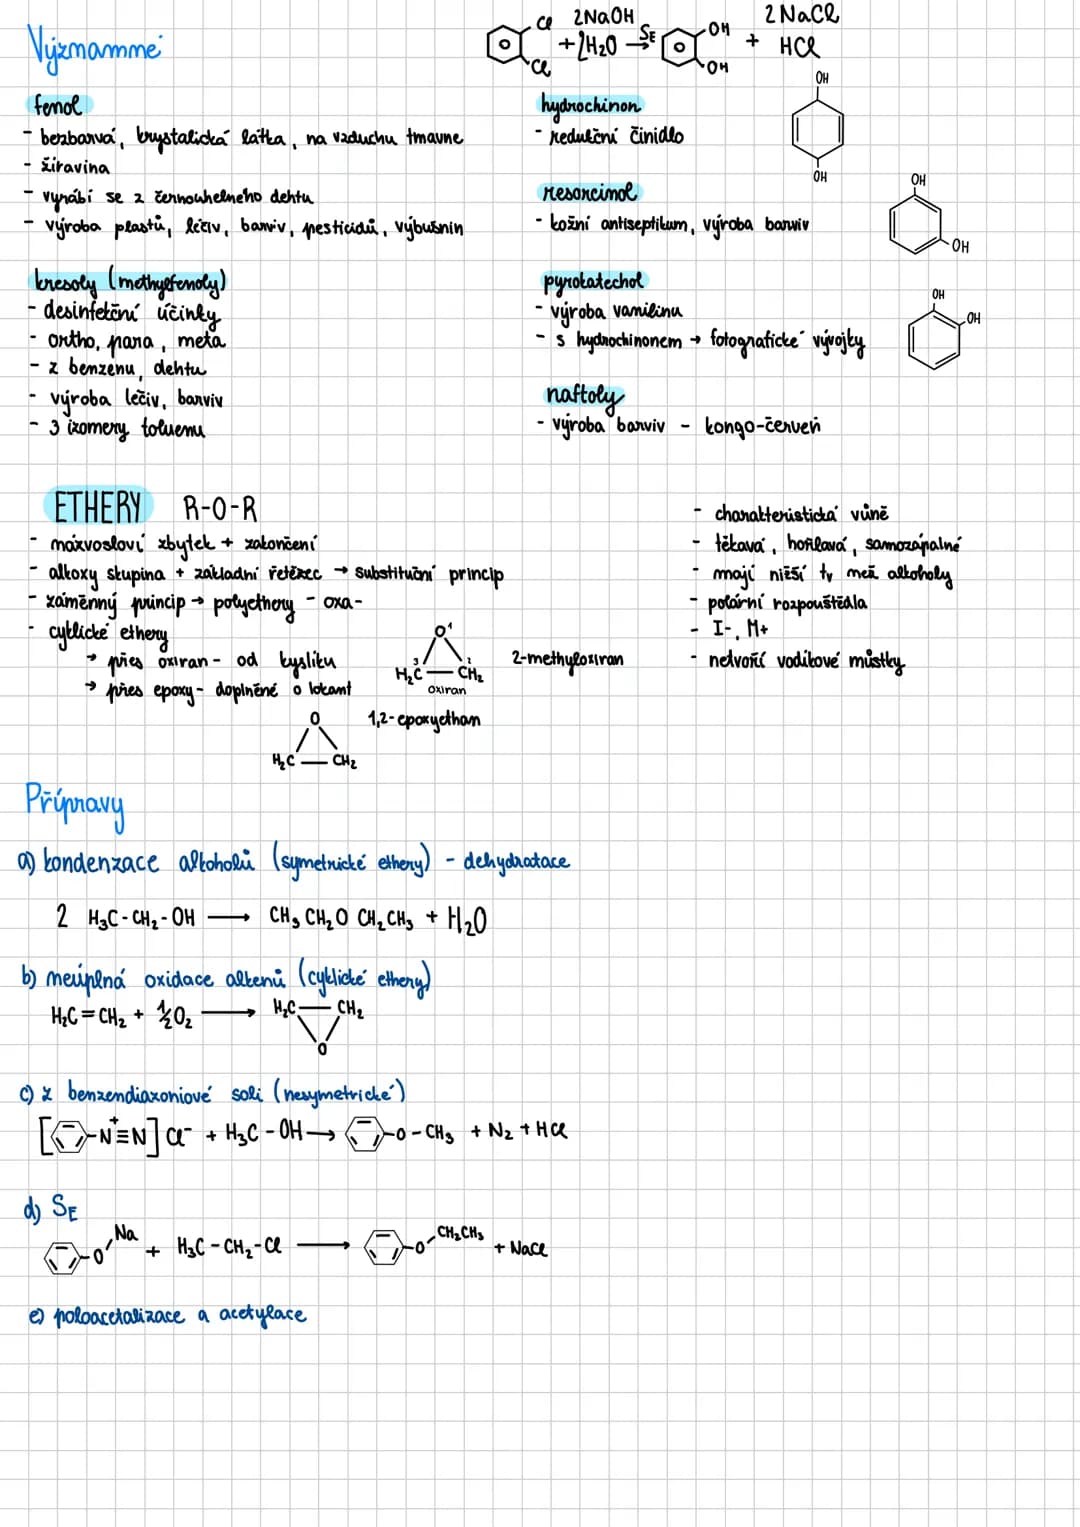 Významné
Cl 2NaOH 2NaCl
+2H₂O SE → OH + HCl
Cl OH
fenol
- bezbarvá, krystalická látka, na vzduchu tmavne
- žíravina
- vyrábí se z černouhelného dehtu
- výroba plastů, léčiv, barviv, pesticidů, výbušnin
kresoly (methylfenoly)
- desinfekční účinky
- ortho, para, meta
- z benzenu, dehtu
- výroba léčiv, barviv
- 3 izomery toluenu
hydrochinon
- redukční činidlo
OH
OH
resorcinol
- kožní antiseptikum, výroba barviv
OH
OH
pyrokatechol
- výroba vanilinu
- s hydrochinonem → fotografické vývojky
OH
OH
naftoly
- výroba barviv - kongo-červeň
ETHERY R-O-R
- názvosloví zbytek + zakončení
- alkoxy skupina + základní řetězec → substituční princip
- záměnný princip → polyethery - oxa-
- cyklické ethery
→ přes oxiran - od kyslíku
→ přes epoxy - doplněné o lokant
O¹
3 2
H₂C — CH₂
oxiran
2-methyloxiran
O
H₂C — CH₂
1,2-epoxyethan
- charakteristická vůně
- těkavá, hořlavá, samozápalné
- mají nižší tv než alkoholy
- polární rozpouštědla
- I-, M+
- netvoří vodíkové můstky
Přípravy
a) kondenzace alkoholů (symetrické ethery) - dehydratace
2 H₃C-CH₂-OH → CH₃CH₂OCH₂CH₃ + H₂O
b) neúplná oxidace alkenů (cyklické ethery)
H₂C=CH₂ + ½O₂ → H₂C — CH₂
O
c) z benzendiazoniové soli (nesymetrické)
[-N⁺≡N] Cl⁻ + H₃C-OH → -O-CH₃ + N₂ + HCl
d) SE
-O Na + H₃C-CH₂-Cl → -O CH₂CH₃ + NaCl
e) poloacetalizace a acetylace